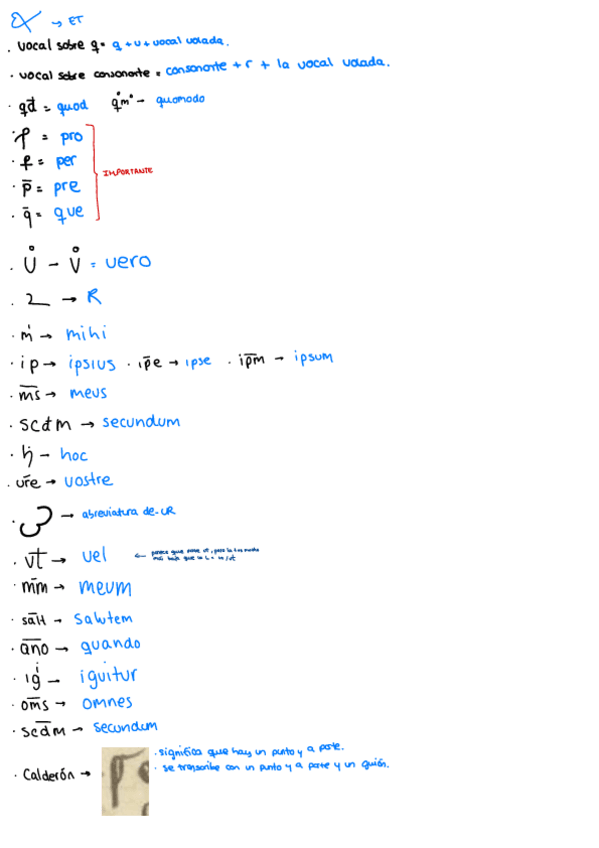 → ET
· vocal sobre q = q + u + vocal volada.
· vocal sobre consonante = consonante + r + la vocal volada.
· qd̄ = quod q̊m° - quomodo
· ꝓ = pro
· ꝑ = per
· p̄ = pre
· q̄ = que
IMPORTANTE
· Ů - V̊ = vero
· 2 → R
· ṁ → mihi
· ip → ipsius · ip̄e → ipse · ip̄m → ipsum
· m̄s̄ → meus
· scđm → secundum
· ḣ - hoc
· ur̄e → vostre
· → abreviatura de -UR
· vt̄ → vel ←
· m̄m̄ → meum
· sāłt - salutem
· ān̄o → quando
· ig̍ - iguitur
· om̄s → omnes
· scd̄m → secundum
· Calderón →
· significa que hay un punto y a parte.
· se transcribe con un punto y a parte y un guión.